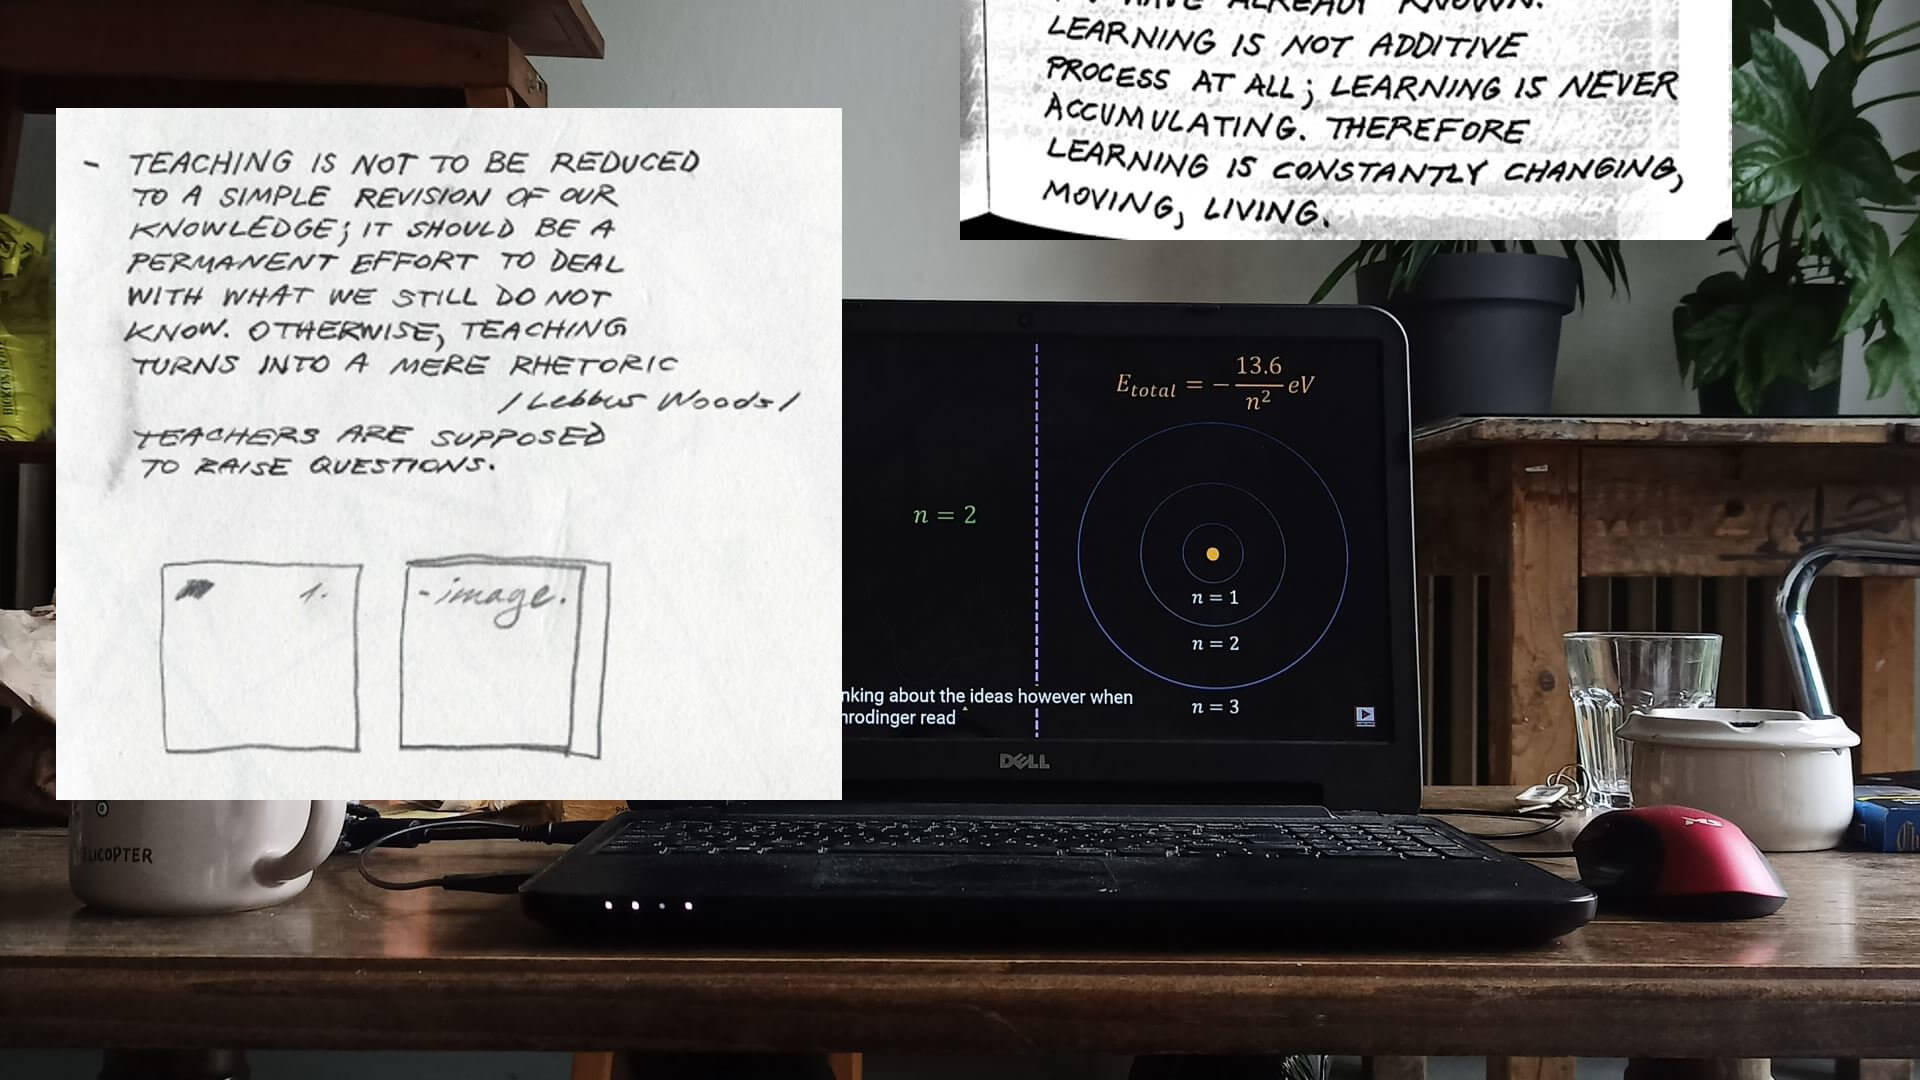 - TEACHING IS NOT TO BE REDUCED
TO A SIMPLE REVISION OF OUR
KNOWLEDGE; IT SHOULD BE A
PERMANENT EFFORT TO DEAL
WITH WHAT WE STILL DO NOT
KNOW. OTHERWISE, TEACHING
TURNS INTO A MERE RHETORIC
/Lebbus Woods/
TEACHERS ARE SUPPOSED
TO RAISE QUESTIONS.
1.
-image.
HAVE ALREADY KNOWN.
LEARNING IS NOT ADDITIVE
PROCESS AT ALL; LEARNING IS NEVER
ACCUMULATING. THEREFORE
LEARNING IS CONSTANTLY CHANGING,
MOVING, LIVING.
E_total = -13.6/n² eV
n = 2
n = 1
n = 2
n = 3
nking about the ideas however when
hrodinger read
DELL
LICOPTER